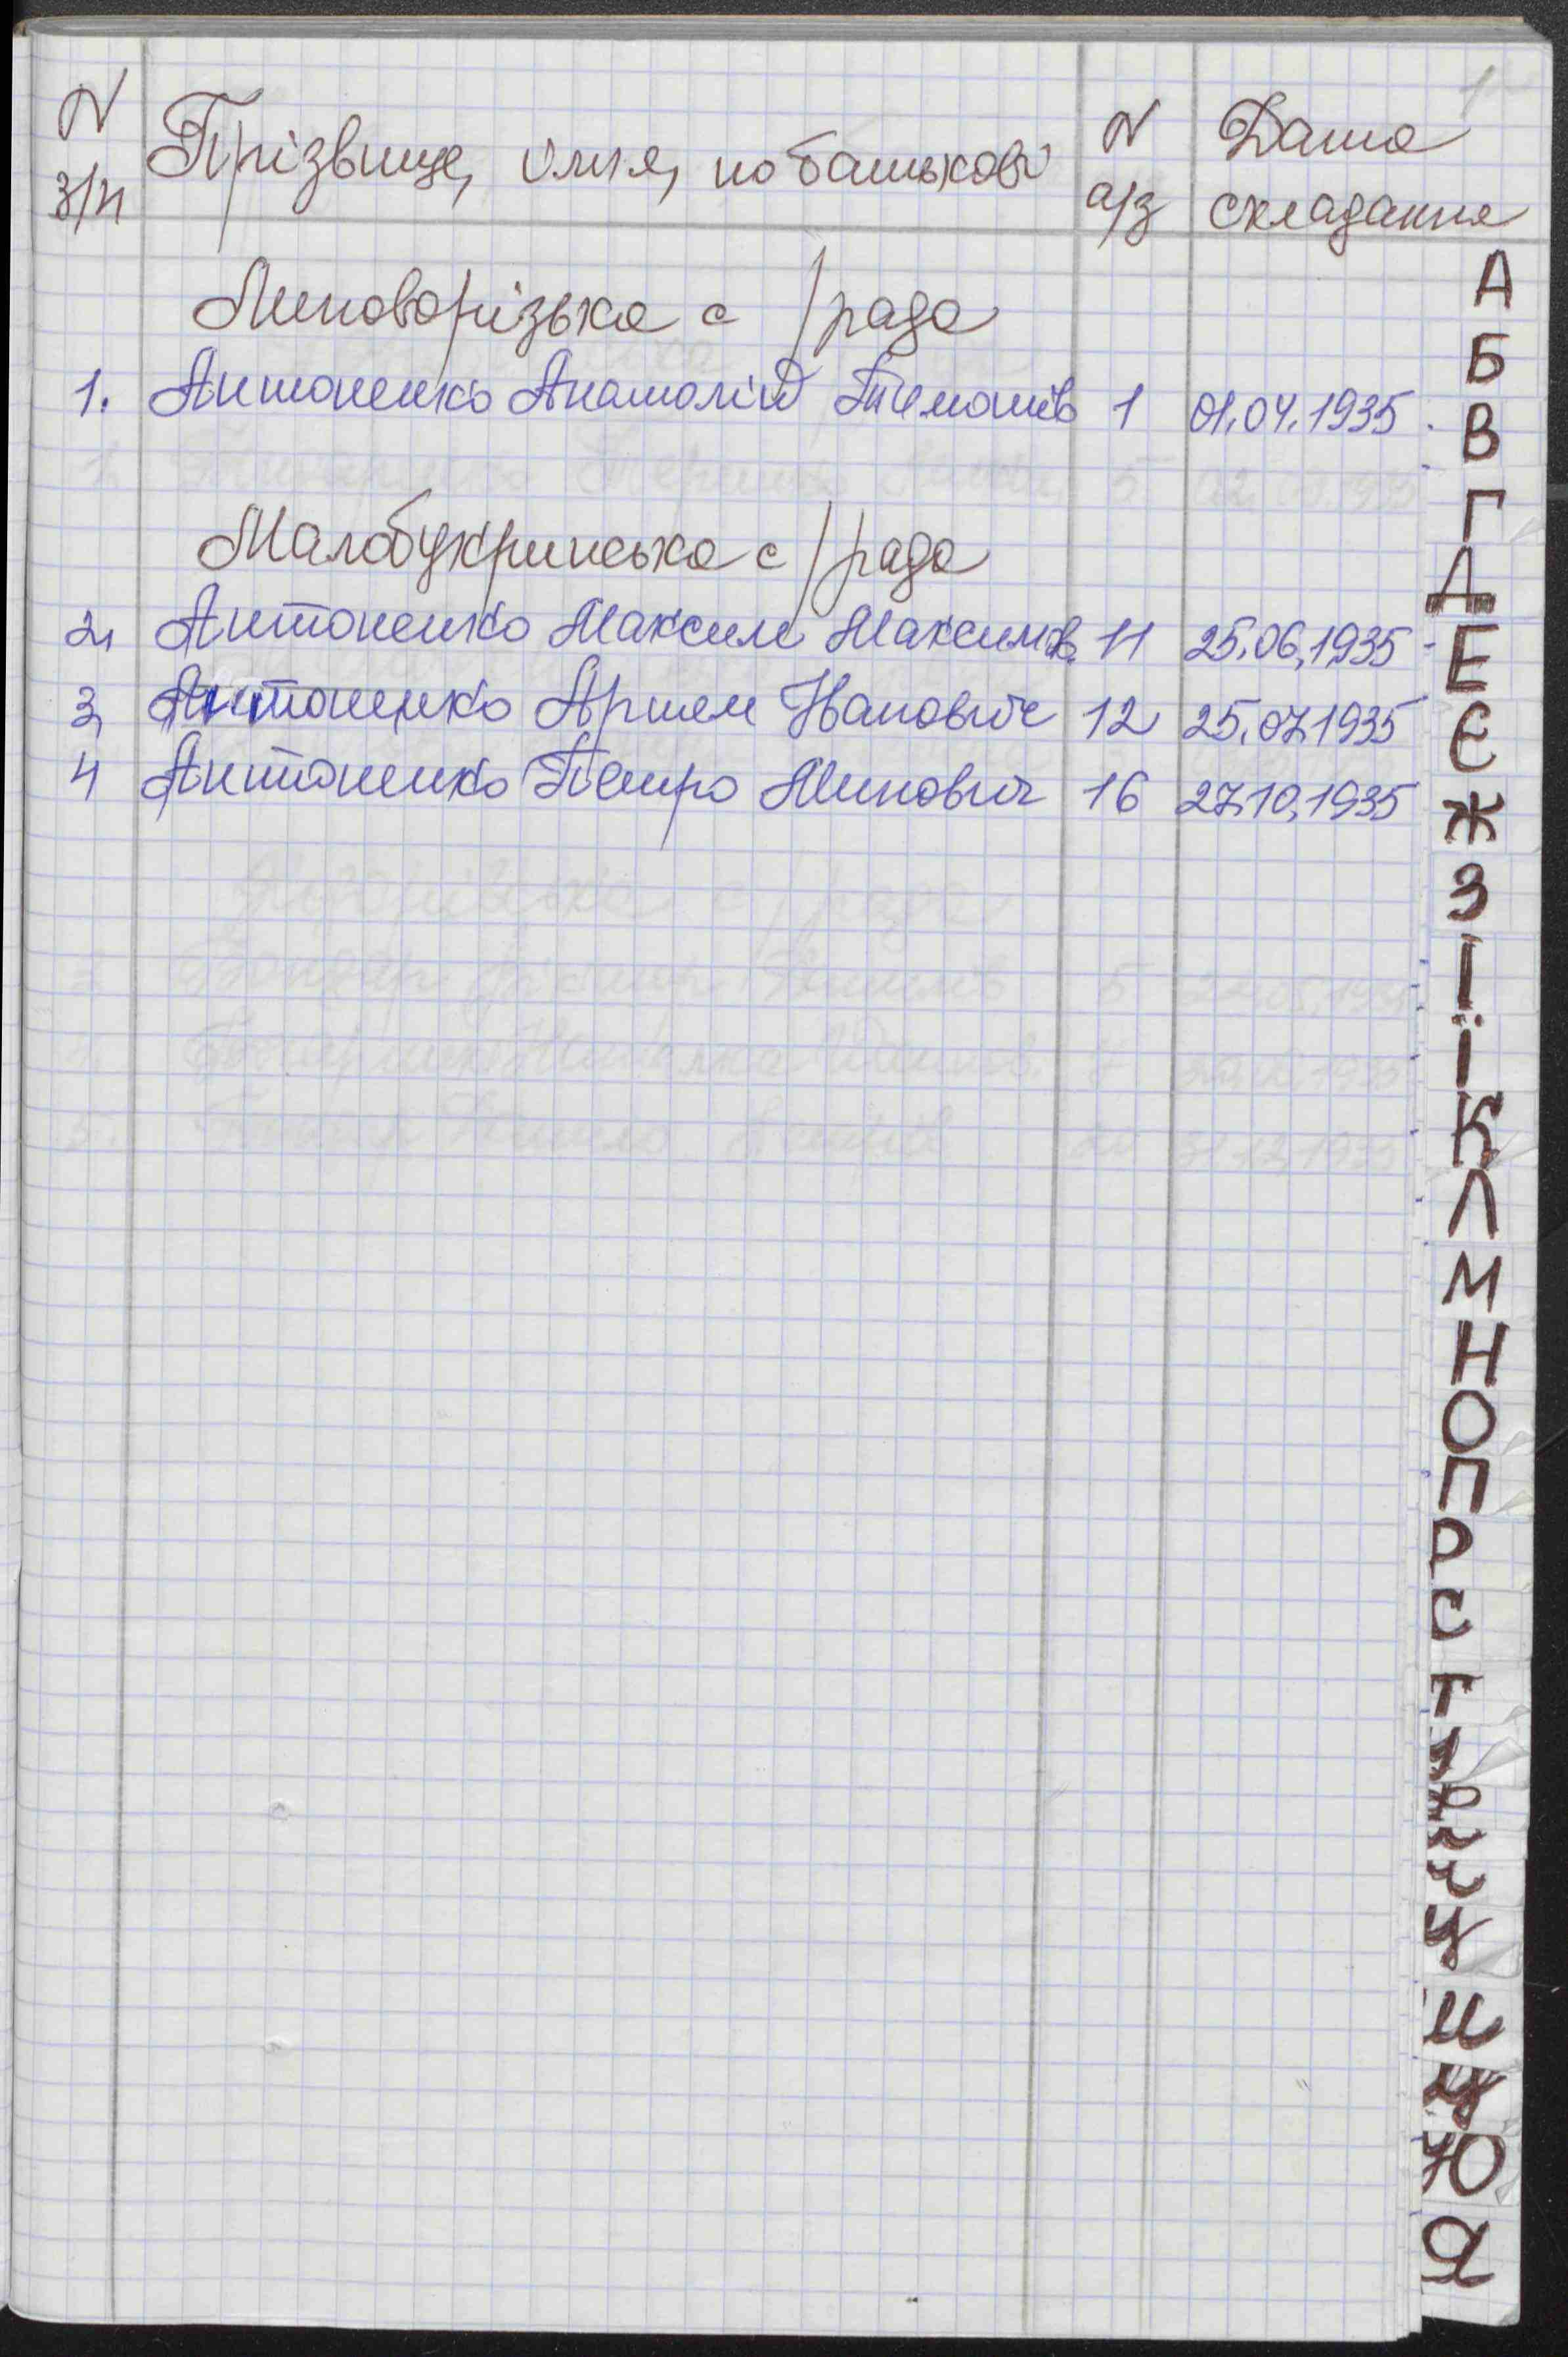 1
N Прізвище, імя, по батькові N Дата
з/п а/з складання
Липоворізька с/рада
1. Антоненко Анатолій Тимошів 1 01.04.1935
Малобукринська с/рада
2. Антоненко Максим Максимов. 11 25.06.1935
3. Антоненко Артем Іванович 12 25.07.1935
4 Антоненко Петро Минович 16 27.10.1935
А
Б
В
Г
Д
Е
Є
Ж
З
І
Ї
К
Л
М
Н
О
П
Р
С
Т
Ч
Ш
Щ
Ю
Я